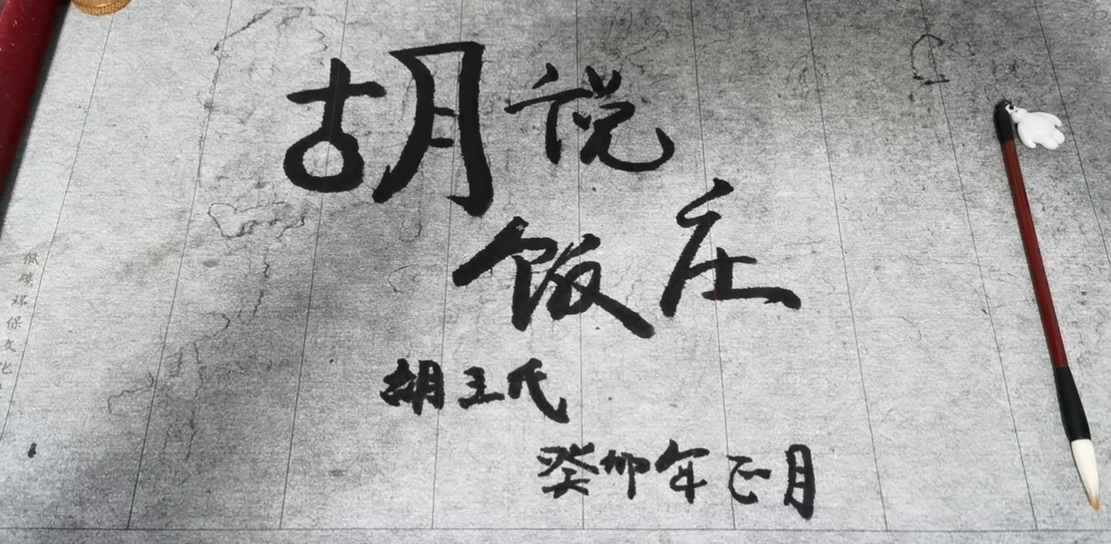 胡说
饭庄
胡王氏
癸卯年正月
低碳环保文化